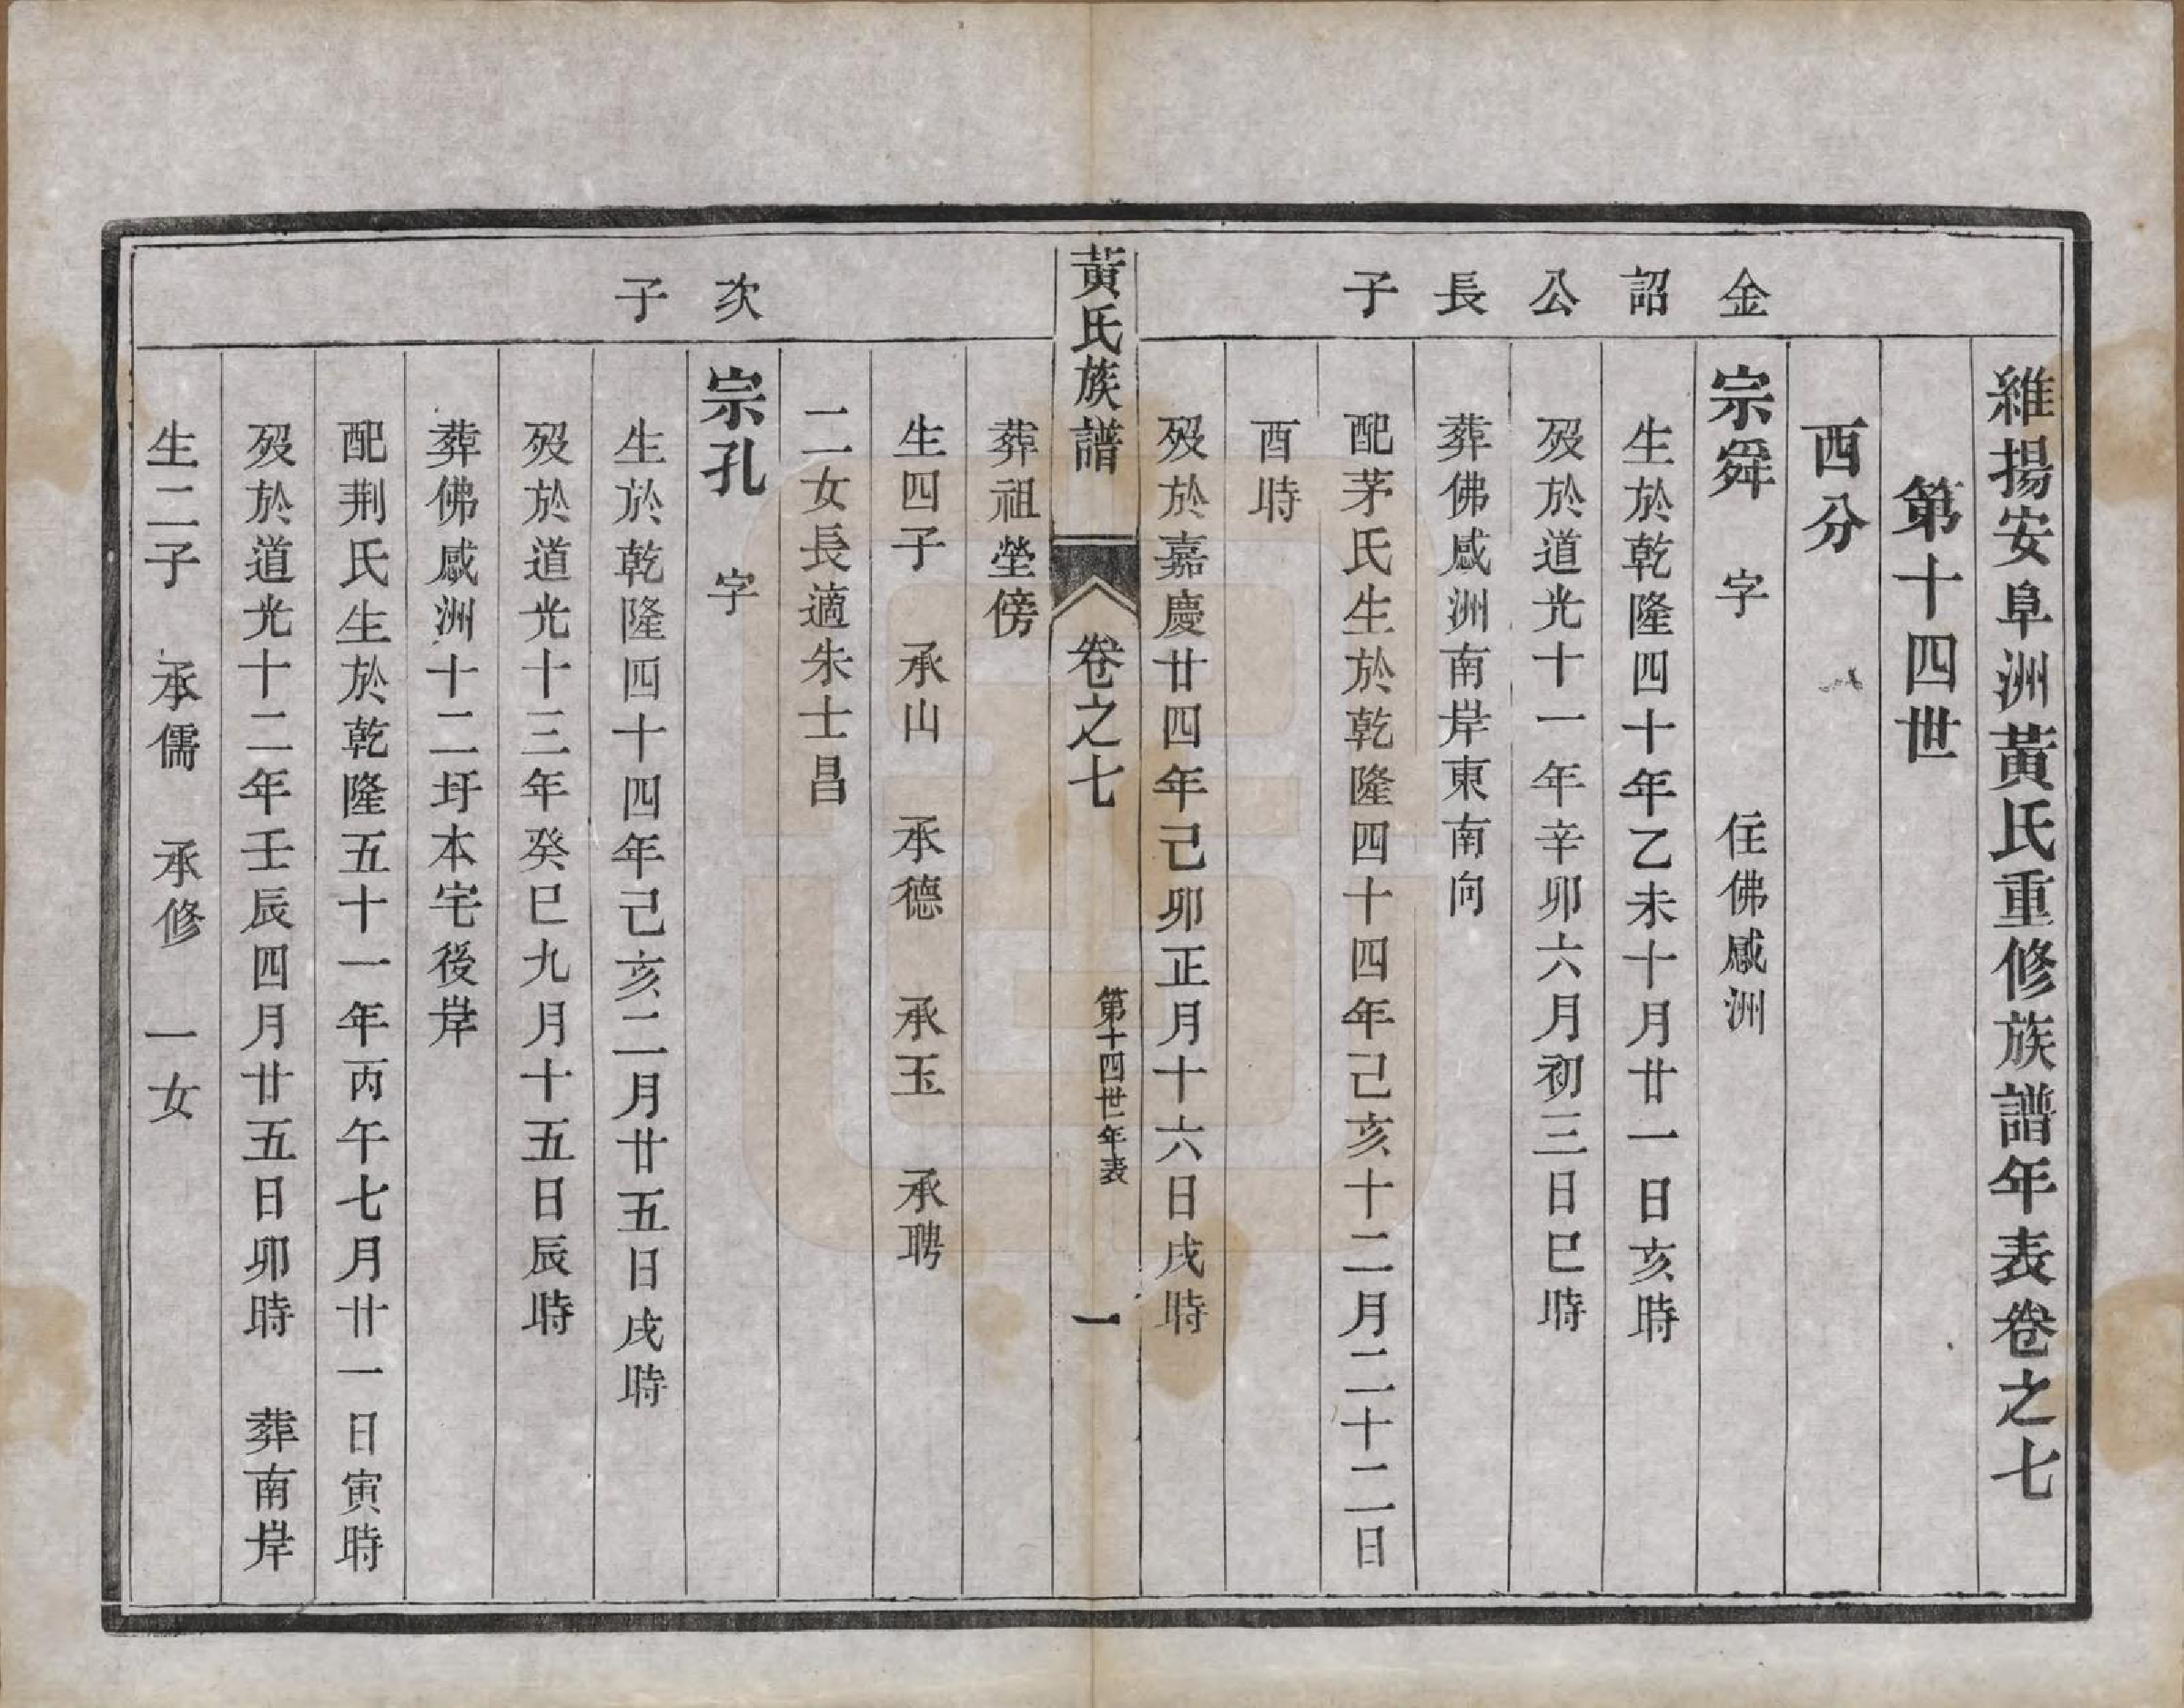 維揚安阜洲黃氏重修族譜年表卷之七
第十四世
西分
金詔公長子
宗舜 字 住佛感洲
生於乾隆四十年乙未十月廿一日亥時
歿於道光十一年辛卯六月初三日巳時
葬佛感洲南岸東南向
配茅氏生於乾隆四十四年己亥十二月二十二日
酉時
歿於嘉慶廿四年己卯正月十六日戌時
黃氏族譜 卷之七 第十四世年表 一
葬祖塋傍
生四子 承山 承德 承玉 承聘
二女長適朱士昌
次子
宗孔 字
生於乾隆四十四年己亥二月廿五日戌時
歿於道光十三年癸巳九月十五日辰時
葬佛感洲十二圩本宅後岸
配荆氏生於乾隆五十一年丙午七月廿一日寅時
歿於道光十二年壬辰四月廿五日卯時 葬南岸
生二子 承儒 承修 一女